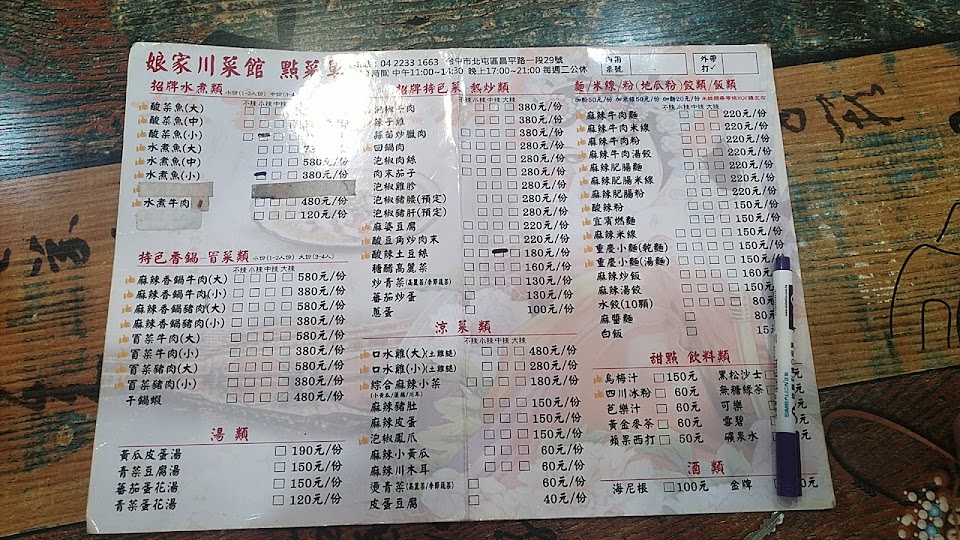 娘家川菜館 點菜單
04 2233 1663 台中市北屯區昌平路一段29號
時間 中午11:00~14:30 晚上17:00~21:00 每週二公休
桌號
外帶
打✓
招牌水煮類 小份(1-2人份)
不辣 小辣 中辣 大辣
酸菜魚(大)
酸菜魚(中)
酸菜魚(小)
水煮魚(大)
水煮魚(中) 580元/份
水煮魚(小) 380元/份
水煮牛肉 480元/份
120元/份
特色香鍋 冒菜類 小份(1-2人份) 大份(3-4人)
不辣 小辣 中辣 大辣
麻辣香鍋牛肉(大) 580元/份
麻辣香鍋牛肉(小) 380元/份
麻辣香鍋豬肉(大) 580元/份
麻辣香鍋豬肉(小) 380元/份
冒菜牛肉(大) 580元/份
冒菜牛肉(小) 380元/份
冒菜豬肉(大) 580元/份
冒菜豬肉(小) 380元/份
干鍋蝦 480元/份
湯類
黃瓜皮蛋湯 190元/份
青菜豆腐湯 150元/份
蕃茄蛋花湯 150元/份
青菜蛋花湯 120元/份
招牌特色菜 熱炒類
不辣 小辣 中辣 大辣
牛肉 380元/份
辣子雞 380元/份
蒜苗炒臘肉 380元/份
回鍋肉 280元/份
泡椒肉絲 280元/份
肉末茄子 280元/份
泡椒雞胗 280元/份
泡椒豬腰(預定) 280元/份
泡椒豬肝(預定) 280元/份
麻婆豆腐 220元/份
酸豆角炒肉末 220元/份
酸辣土豆絲 180元/份
糖醋高麗菜 160元/份
炒青菜(高麗菜/季節蔬菜) 130元/份
蕃茄炒蛋 130元/份
蔥蛋 100元/份
涼菜類
不辣 小辣 中辣 大辣
口水雞(大)(土雞腿) 480元/份
口水雞(小)(土雞腿) 280元/份
綜合麻辣小菜 180元/份
麻辣豬肚 150元/份
麻辣皮蛋 150元/份
泡椒鳳爪 150元/份
麻辣小黃瓜 60元/份
麻辣川木耳 60元/份
燙青菜(高麗菜/季節蔬菜) 60元/份
皮蛋豆腐 40元/份
麵/米線/粉(地瓜粉)餃類/飯類
不辣 小辣 中辣 大辣
麻辣牛肉麵 220元/份
麻辣牛肉米線 220元/份
麻辣牛肉粉 220元/份
麻辣牛肉湯餃 220元/份
麻辣肥腸麵 220元/份
麻辣肥腸米線 220元/份
麻辣肥腸粉 220元/份
酸辣粉 150元/份
宜賓燃麵 150元/份
麻辣米線 150元/份
重慶小麵(乾麵) 150元/份
重慶小麵(湯麵) 150元/份
麻辣炒飯 160元/份
麻辣湯餃 150元/份
水餃(10顆) 80元
麻醬麵 80
白飯 15
甜點 飲料類
烏梅汁 150元
四川冰粉 60元
芭樂汁 60元
黃金麥茶 60元
蘋果西打 50元
黑松沙士
無糖綠茶
可樂
雪碧
礦泉水
酒類
海尼根 100元 金牌